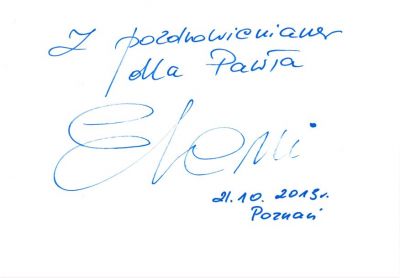 Z pozdrowieniami
dla Pawła
Eleni
21.10.2013r.
Poznań